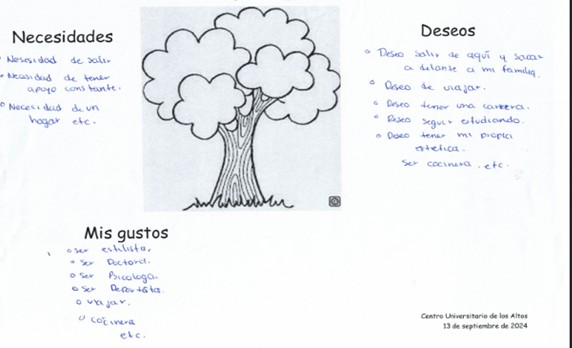 Necesidades
° Nesesidad de salir
° Necesidad de tener
apoyo constante.
° Necesidad de un
hogar etc.
Deseos
° Deseo salir de aquí y sacar
a delante a mi familia.
° Deseo de viajar.
° Deseo tener una carrera.
° Deseo seguir estudiando.
° Deseo tener mi propia
estetica.
ser cocinera. etc.
Mis gustos
° ser estilista.
° ser Doctora.
° ser Bicologa.
° ser Deportista.
° viajar.
° cocinera
etc.
Centro Universitario de los Altos
13 de septiembre de 2024